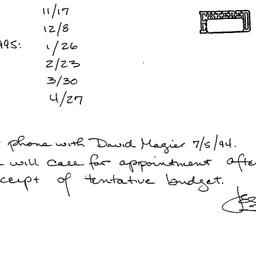 11/17
12/8
1995: 1/26
2/23
3/30
4/27
phone with David Magier 7/5/94.
will call for appointment after
receipt of tentative budget.